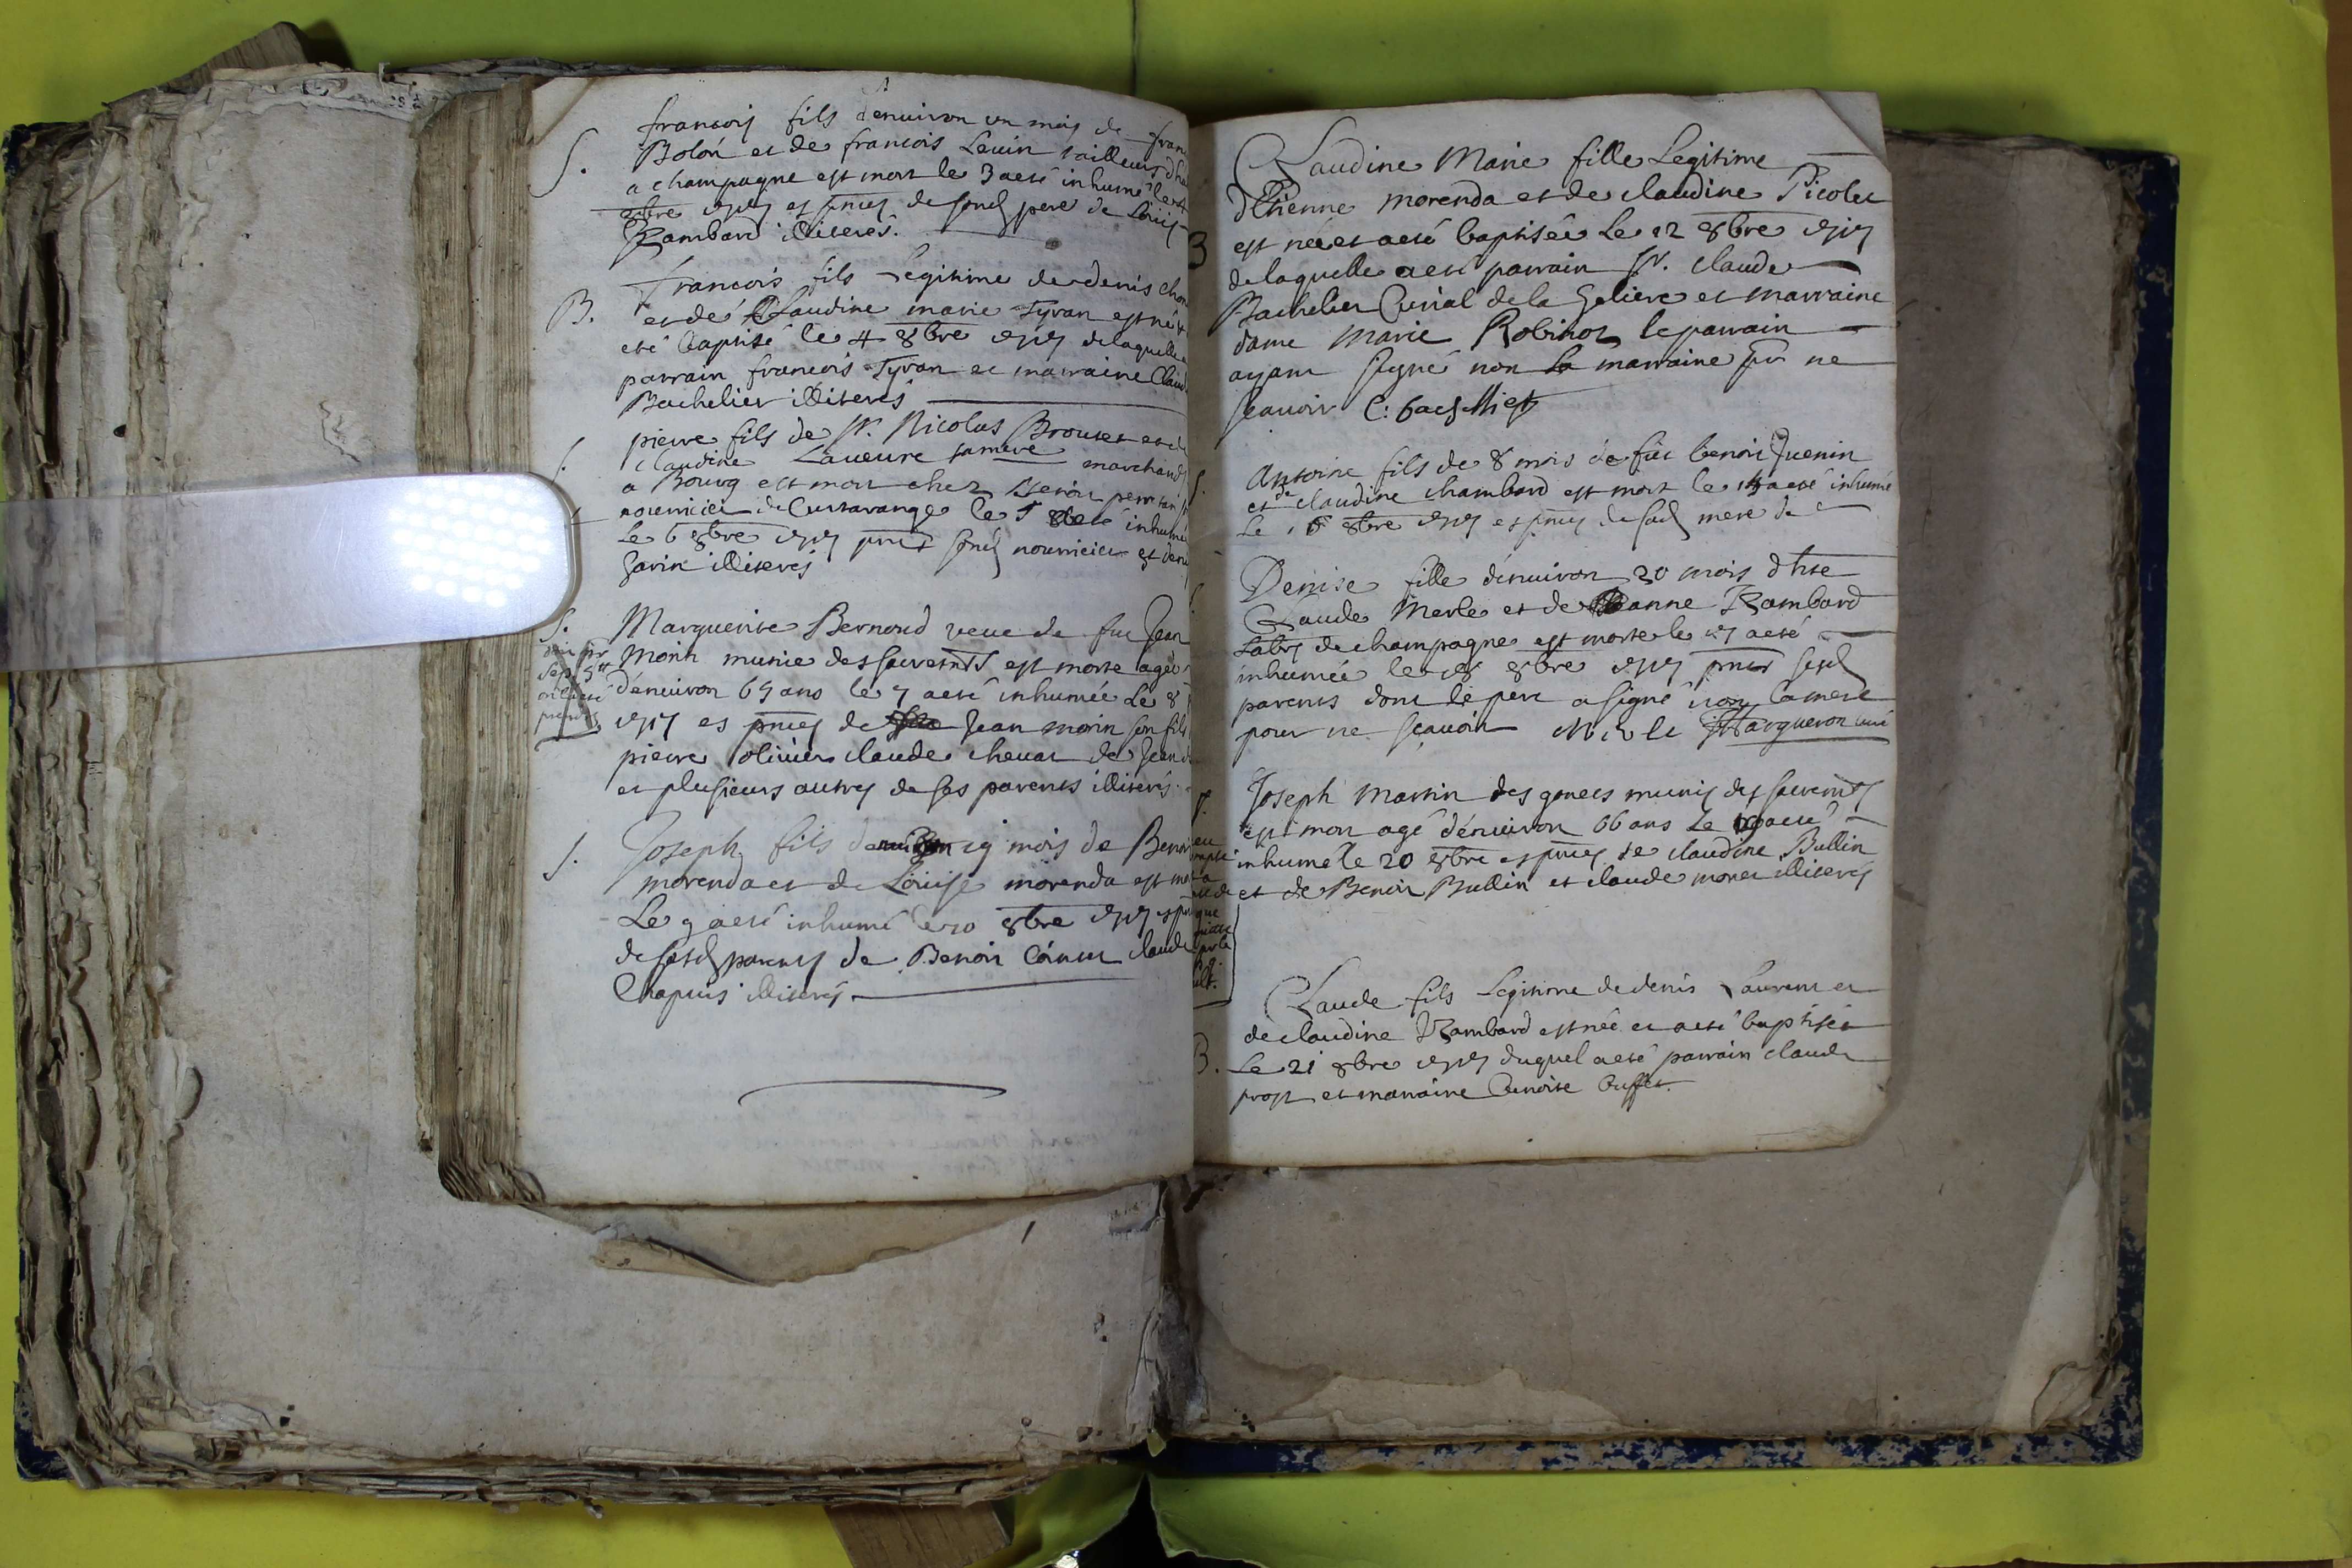 francois fils denuiron un mois de fran
S. Bolon et de francois Leuin tailleurs dha
a champagne est mort le 3 a eté inhumé le 4
8bre 1717 es pnces desond pere de Louis
Rambard illiterés.
Francois fils Legitime de denis chon
B. et de Claudine marie Tyran est né et
eté baptisé le 4 8bre 1717 delaquelle
parrain francois Tyran et marraine Claud
Bachelier illiterés
pierre fils de Sr. Nicolas Brouet et de
S. Claudine Laueure sa mere marchand
a Bourg est mort chez Benoit
nourricier de Curtarange le 5 a eté inhumé
Le 6 8bre 1717 pnts sond nourricier et denis
Garin illiterés
S. Marguerite Bernoud veue de fut Jean
Morin munie des sacremts est morte agée
denuiron 65 ans le 7 a eté inhumée Le 8
1717 es pnces de Jean morin son fils
pierre oliuier claude cheuat de Jean
et plusieurs autres de ses parents illiterés.
S. Joseph fils mois de Benoit
morenda et de Louise morenda est mort
Le 9 a eté inhumé le 10 8bre 1717 es pn
de sesd parents de Benoit Claude
Chapuis illiterés
Claudine Marie fille Legitime
dEtienne morenda et de claudine Picolet
B est née et a eté baptisée Le 12 8bre 1717
de laquelle a eté parrain Sr. claude
Bachelier Curial de la Geliere et marraine
dame Marie Robinot le parrain
ayant signé non La marraine pr ne
scauoir C: bachellier
Antoine fils de 8 mois de fut benoit Juenin
S. et de claudine chambard est mort le 14 a eté inhumé
Le 15 8bre 1717 es pnces de sad mere de
Denise fille denuiron 20 mois dhte
Claude Merle et de Jeanne Rambard
Labrs de champagne est morte le 17 a eté
inhumée le 18 8bre 1717 pnts sesd
parents dont le pere a signé non la mere
pour ne scauoir Merle Margueron curé
Joseph Martin des gonets munis des sacremts
est mort agé denuiron 66 ans Le 19 a eté
inhumé le 20 8bre es pnces de claudine Bullin
et de Benoit Bullin et claude monet illiterés
Claude fils Legitime de denis Laurent et
de claudine Rambard est né et a eté baptisé
B. Le 21 8bre 1717 duquel a eté parrain claude
prost et marraine Benoite buffet.